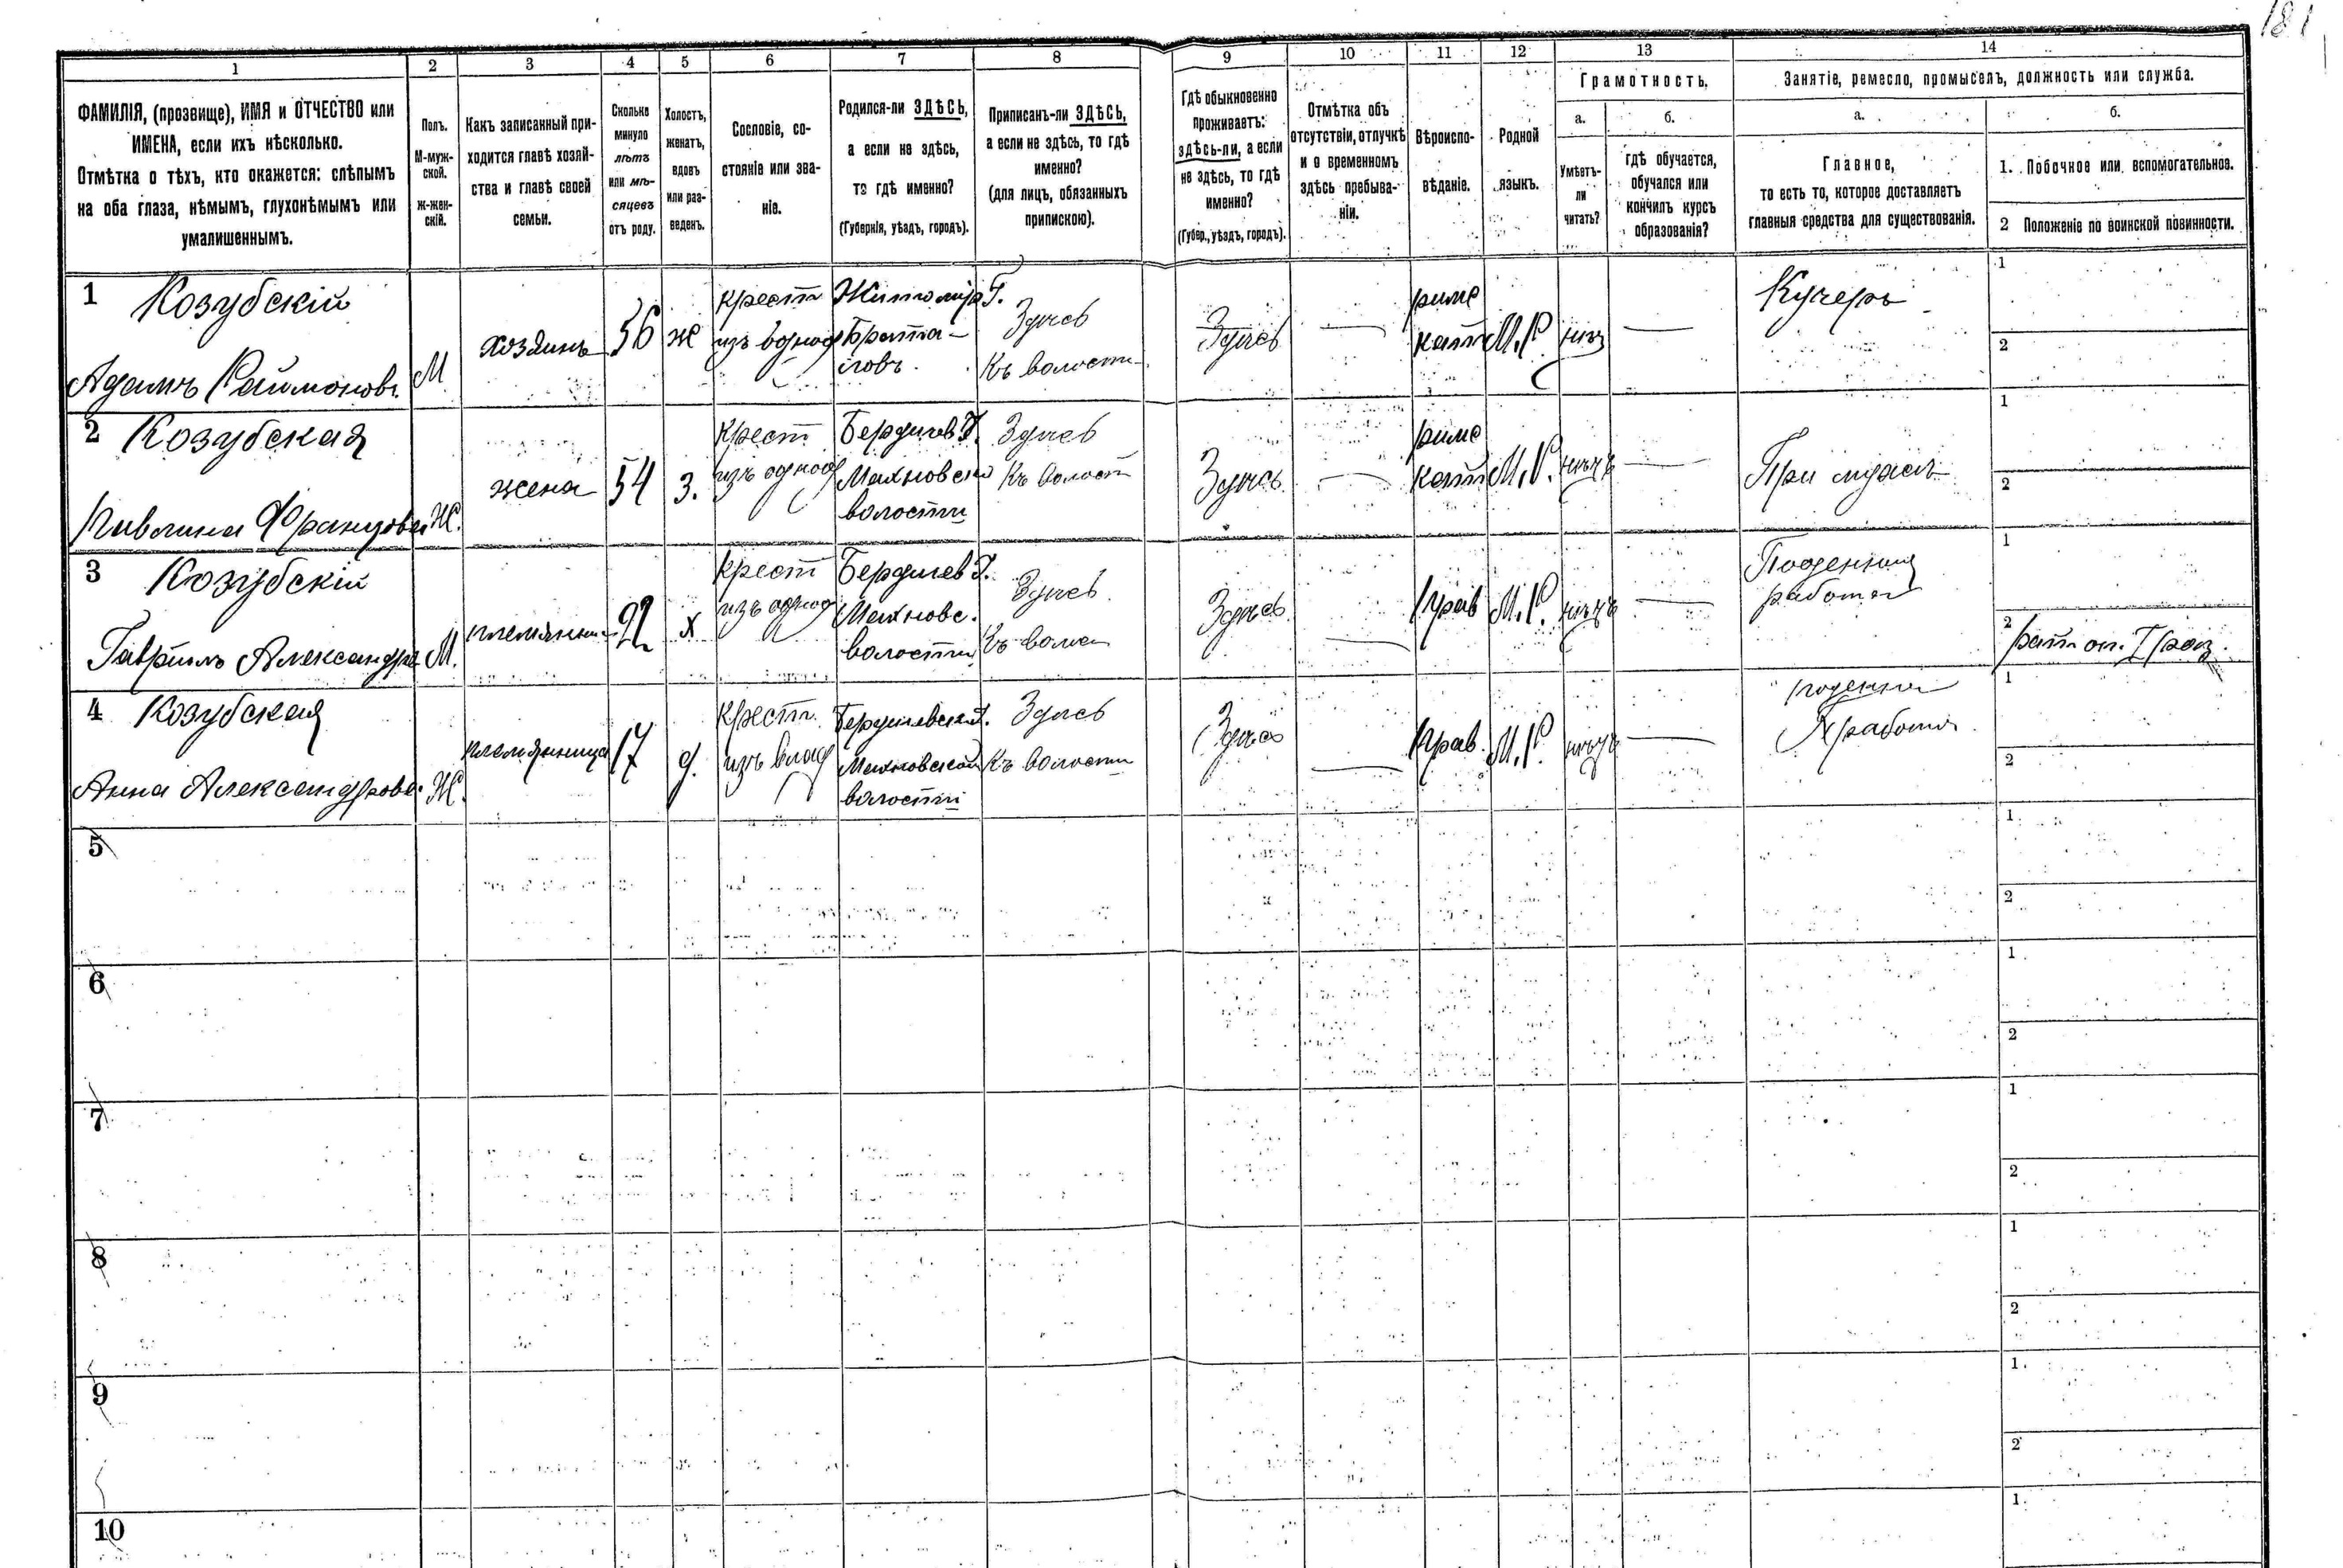 181
1 2 3 4 5 6 7 8 9 10 11 12 13 14
ФАМИЛІЯ, (прозвище), ИМЯ и ОТЧЕСТВО или
ИМЕНА, если ихъ нѣсколько.
Отмѣтка о тѣхъ, кто окажется: слѣпымъ
на оба глаза, нѣмымъ, глухонѣмымъ или
умалишеннымъ.
Полъ.
М-муж-
ской.
ж-жен-
скій.
Какъ записанный при-
ходится главѣ хозяй-
ства и главѣ своей
семьи.
Сколько
минуло
лѣтъ
или мѣ-
сяцевъ
отъ роду.
Холостъ,
женатъ,
вдовъ
или раз-
веденъ.
Сословіе, со-
стояніе или зва-
ніе.
Родился-ли ЗДѢСЬ,
а если не здѣсь,
то гдѣ именно?
(Губернія, уѣздъ, городъ).
Приписанъ-ли ЗДѢСЬ,
а если не здѣсь, то гдѣ
именно?
(для лицъ, обязанныхъ
припискою).
Гдѣ обыкновенно
проживаетъ:
здѣсь-ли, а если
не здѣсь, то гдѣ
именно?
(Губер., уѣздъ, городъ).
Отмѣтка объ
отсутствіи, отлучкѣ
и о временномъ
здѣсь пребыва-
ніи.
Вѣроиспо-
вѣданіе.
Родной
языкъ.
Грамотность.
а.
Умѣетъ-
ли
читать?
б.
гдѣ обучается,
обучался или
кончилъ курсъ
образованія?
Занятіе, ремесло, промыселъ, должность или служба.
а.
Главное,
то есть то, которое доставляетъ
главныя средства для существованія.
б.
1. Побочное или вспомогательное.
2 Положеніе по воинской повинности.
1 Козубскій
Адамъ Раймонов.
М
хозяинъ
56
ж
крест
изъ однод
Житомір г.
Здѣсь
къ волости
Здѣсь
—
римс
кат
М.Р.
нѣтъ
—
Кучеръ
1
2
2 Козубская
Францова
Ж.
жена
54
з.
крест
изъ однод
Бердичев г.
Махновско
волости
Здѣсь
къ волост
Здѣсь
—
римс
кат
М.Р.
нѣтъ
—
При мужѣ
1
2
3 Козубскій
Гавриилъ Александро
М.
племянник
22
х
крест
изъ однод
Бердичев г.
Махновс.
волости
Здѣсь
къ волос
Здѣсь
—
прав
М.Р.
нѣтъ
—
Поденный
работа
1
2
рат оп. I раз.
4 Козубская
Анна Александрова
Ж.
племянница
17
д.
крест.
Бердичевск г.
Махновской
волости
Здѣсь
къ волости
Здѣсь
—
прав.
М.Р.
нѣтъ
—
поденна
работа
1
2
5
1
2
6
1
2
7
1
2
8
1
2
9
1.
2
10
1.